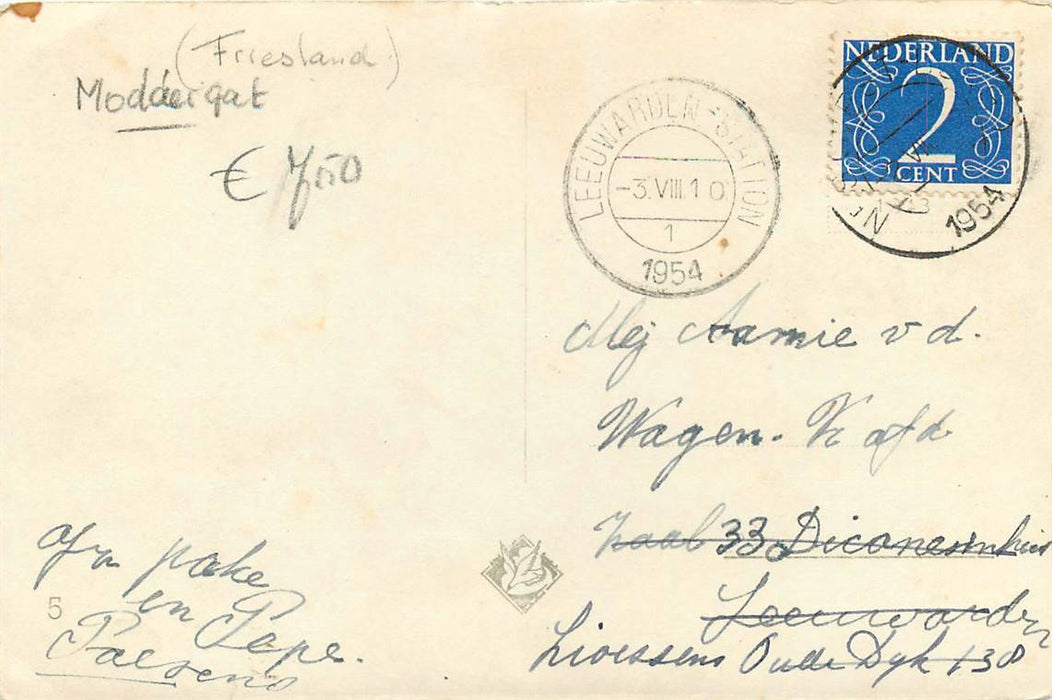 (Friesland)
Moddergat
€ 7,50
NEDERLAND
2
CENT
1954
LEEUWARDEN-STATION
-3.VIII.10
1
1954
Mej Aamie v d.
Wagen. K afd
Zaal 33 Diconessinhuis
Leeuwarden
Lioessens Oude Dyk 138
afz pake
en Pape.
Paesens
5